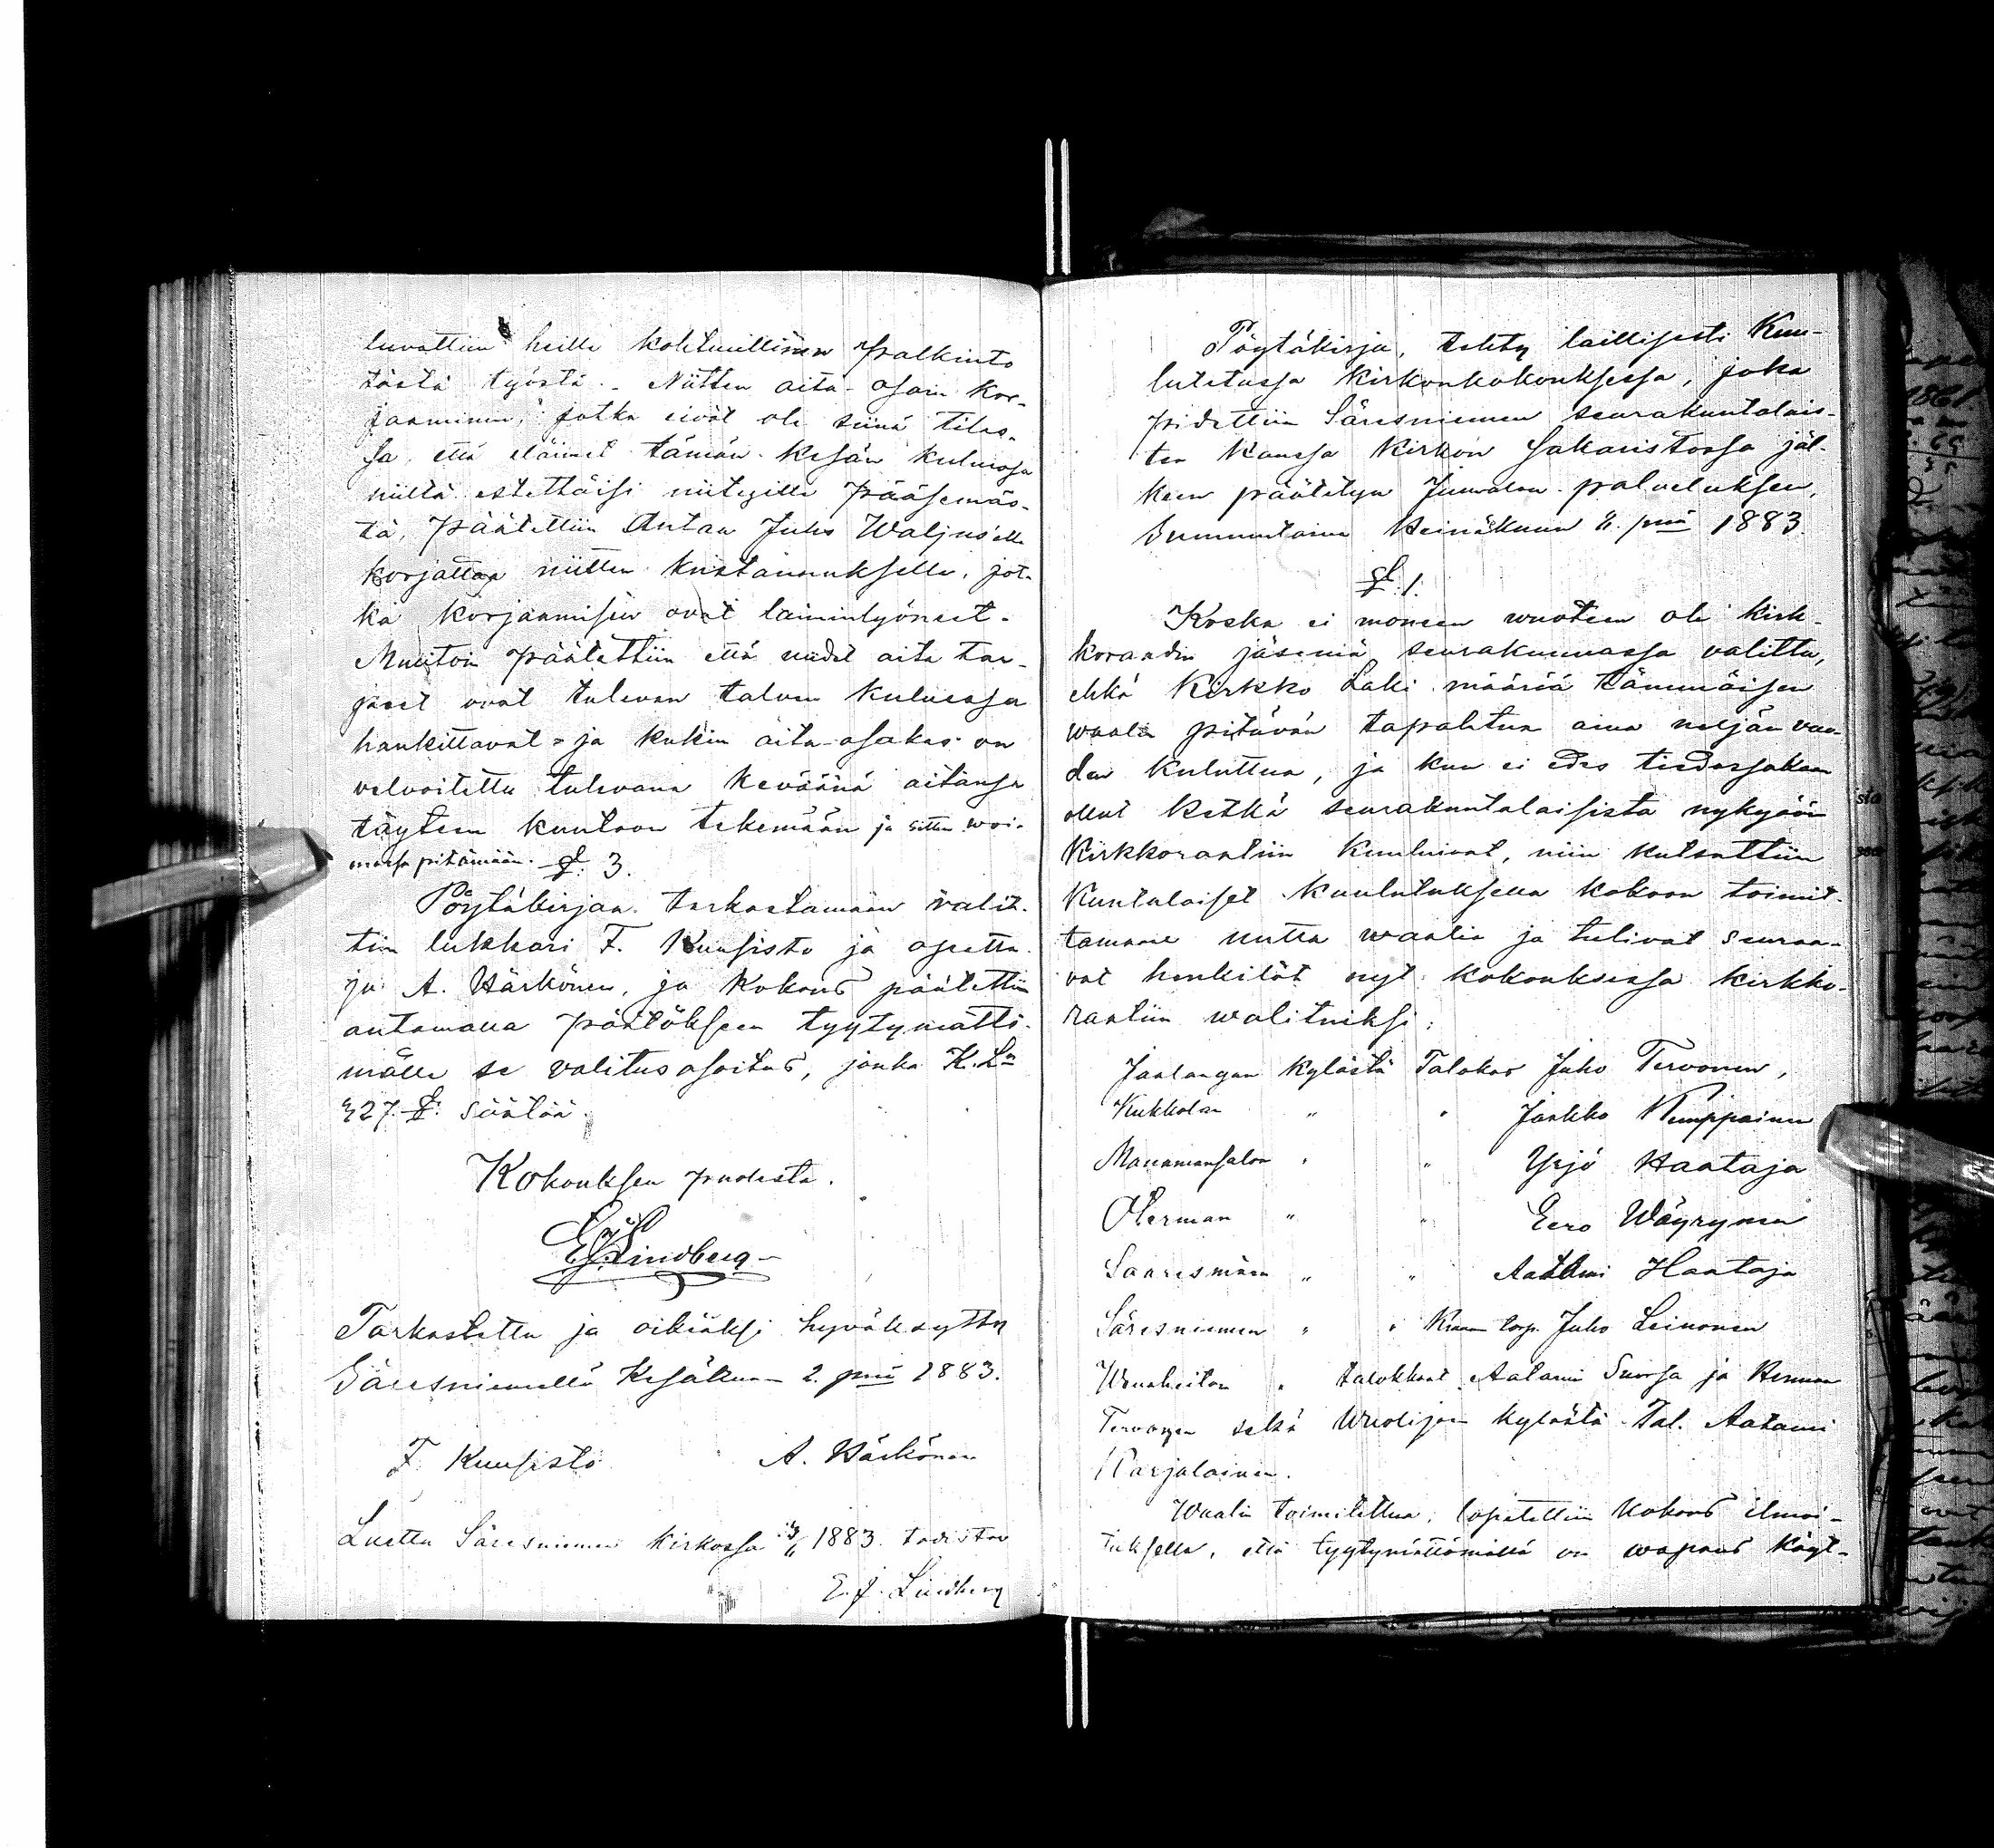 luvattiin heille kohtuullinen palkinto
tästä työstä. - Niitten aita-osain kor-
jaaminen, jotka eivät ole siinä tilas-
sa, että eläimet tämän kesän kuluessa
niiltä estettäisi niityille pääsemäs-
tä, päätettiin Antaa Juho Waljus'elle
korjattaa niitten kustannuksella, jot-
ka korjaamisen ovat laiminlyöneet.
Muutoin päätettiin että uudet aita tar-
peet ovat tulevan talven kuluessa
hankittavat - ja kukin aita-osakas on
velvoitettu tulevana keväänä aitansa
täyteen kuntoon tekemään ja sitten woi-
massa pitämään. §: 3.
Pöytäkirjaa tarkastamaan valit-
tiin lukkari F. Kuusisto ja opetta-
ja A. Härkönen, ja kokous päätettiin
antamalla päätökseen tyytymättö-
mälle se valitusosoitus, jonka K. Ln
27. §: säätää.
Kokouksen puolesta.
E J Lindberg
Tarkastettu ja oikiaksi hyväksytty
Säresniemellä Kesäkuun 2. pnä 1883.
F. Kuusisto A. Härkönen
Luettu Säresniemen kirkossa 3/6 1883. todistaa
E. J. Lindberg
Pöytäkirja, tehty laillisesti Kuu-
lutetussa kirkonkokouksessa, joka
pidettiin Säresniemen seurakuntalais-
ten kanssa Kirkon Sakaristossa jäl-
keen päätetyn Jumalan-palveluksen,
Sunnuntaina Heinäkuun pnä 1883.
§: 1.
Koska ei moneen wuoteen ole kirk-
koraadin jäseniä seurakunnassa valittu,
ehkä Kirkko Laki määrää tämmöisen
waalin pitävän tapahtua aina neljän vuo-
den kuluttua, ja kun ei edes tiedossakaan
ollut ketkä seurakuntalaisista nykyään
Kirkkoraatiin kuuluivat, niin kutsuttiin
Kuntalaiset kuulutuksella kokoon toimit-
tamaan uutta waalia ja tulivat seuraa-
vat henkilöt nyt kokouksessa kirkko-
raatiin walituiksi:
Jaalangan kylästä Talokas Juho Tervonen,
Kukkolan " " Jaakko Kemppainen
Manamansalon " " Yrjö Haataja
Oterman " " Eero Wäyrynen
Saaresmäen " " Aatami Haataja
Säresniemen " " Kruun torp. Juho Leinonen
Weneheiton " talokkaat Aatami Suorsa ja Herman
Tervonen sekä Wuolijoen kylästä Tal. Aatami
Karjalainen.
Waalin toimitettua, lopetettiin kokous ilmoi-
tuksella, että tyytymättömällä on wapaus käyt-